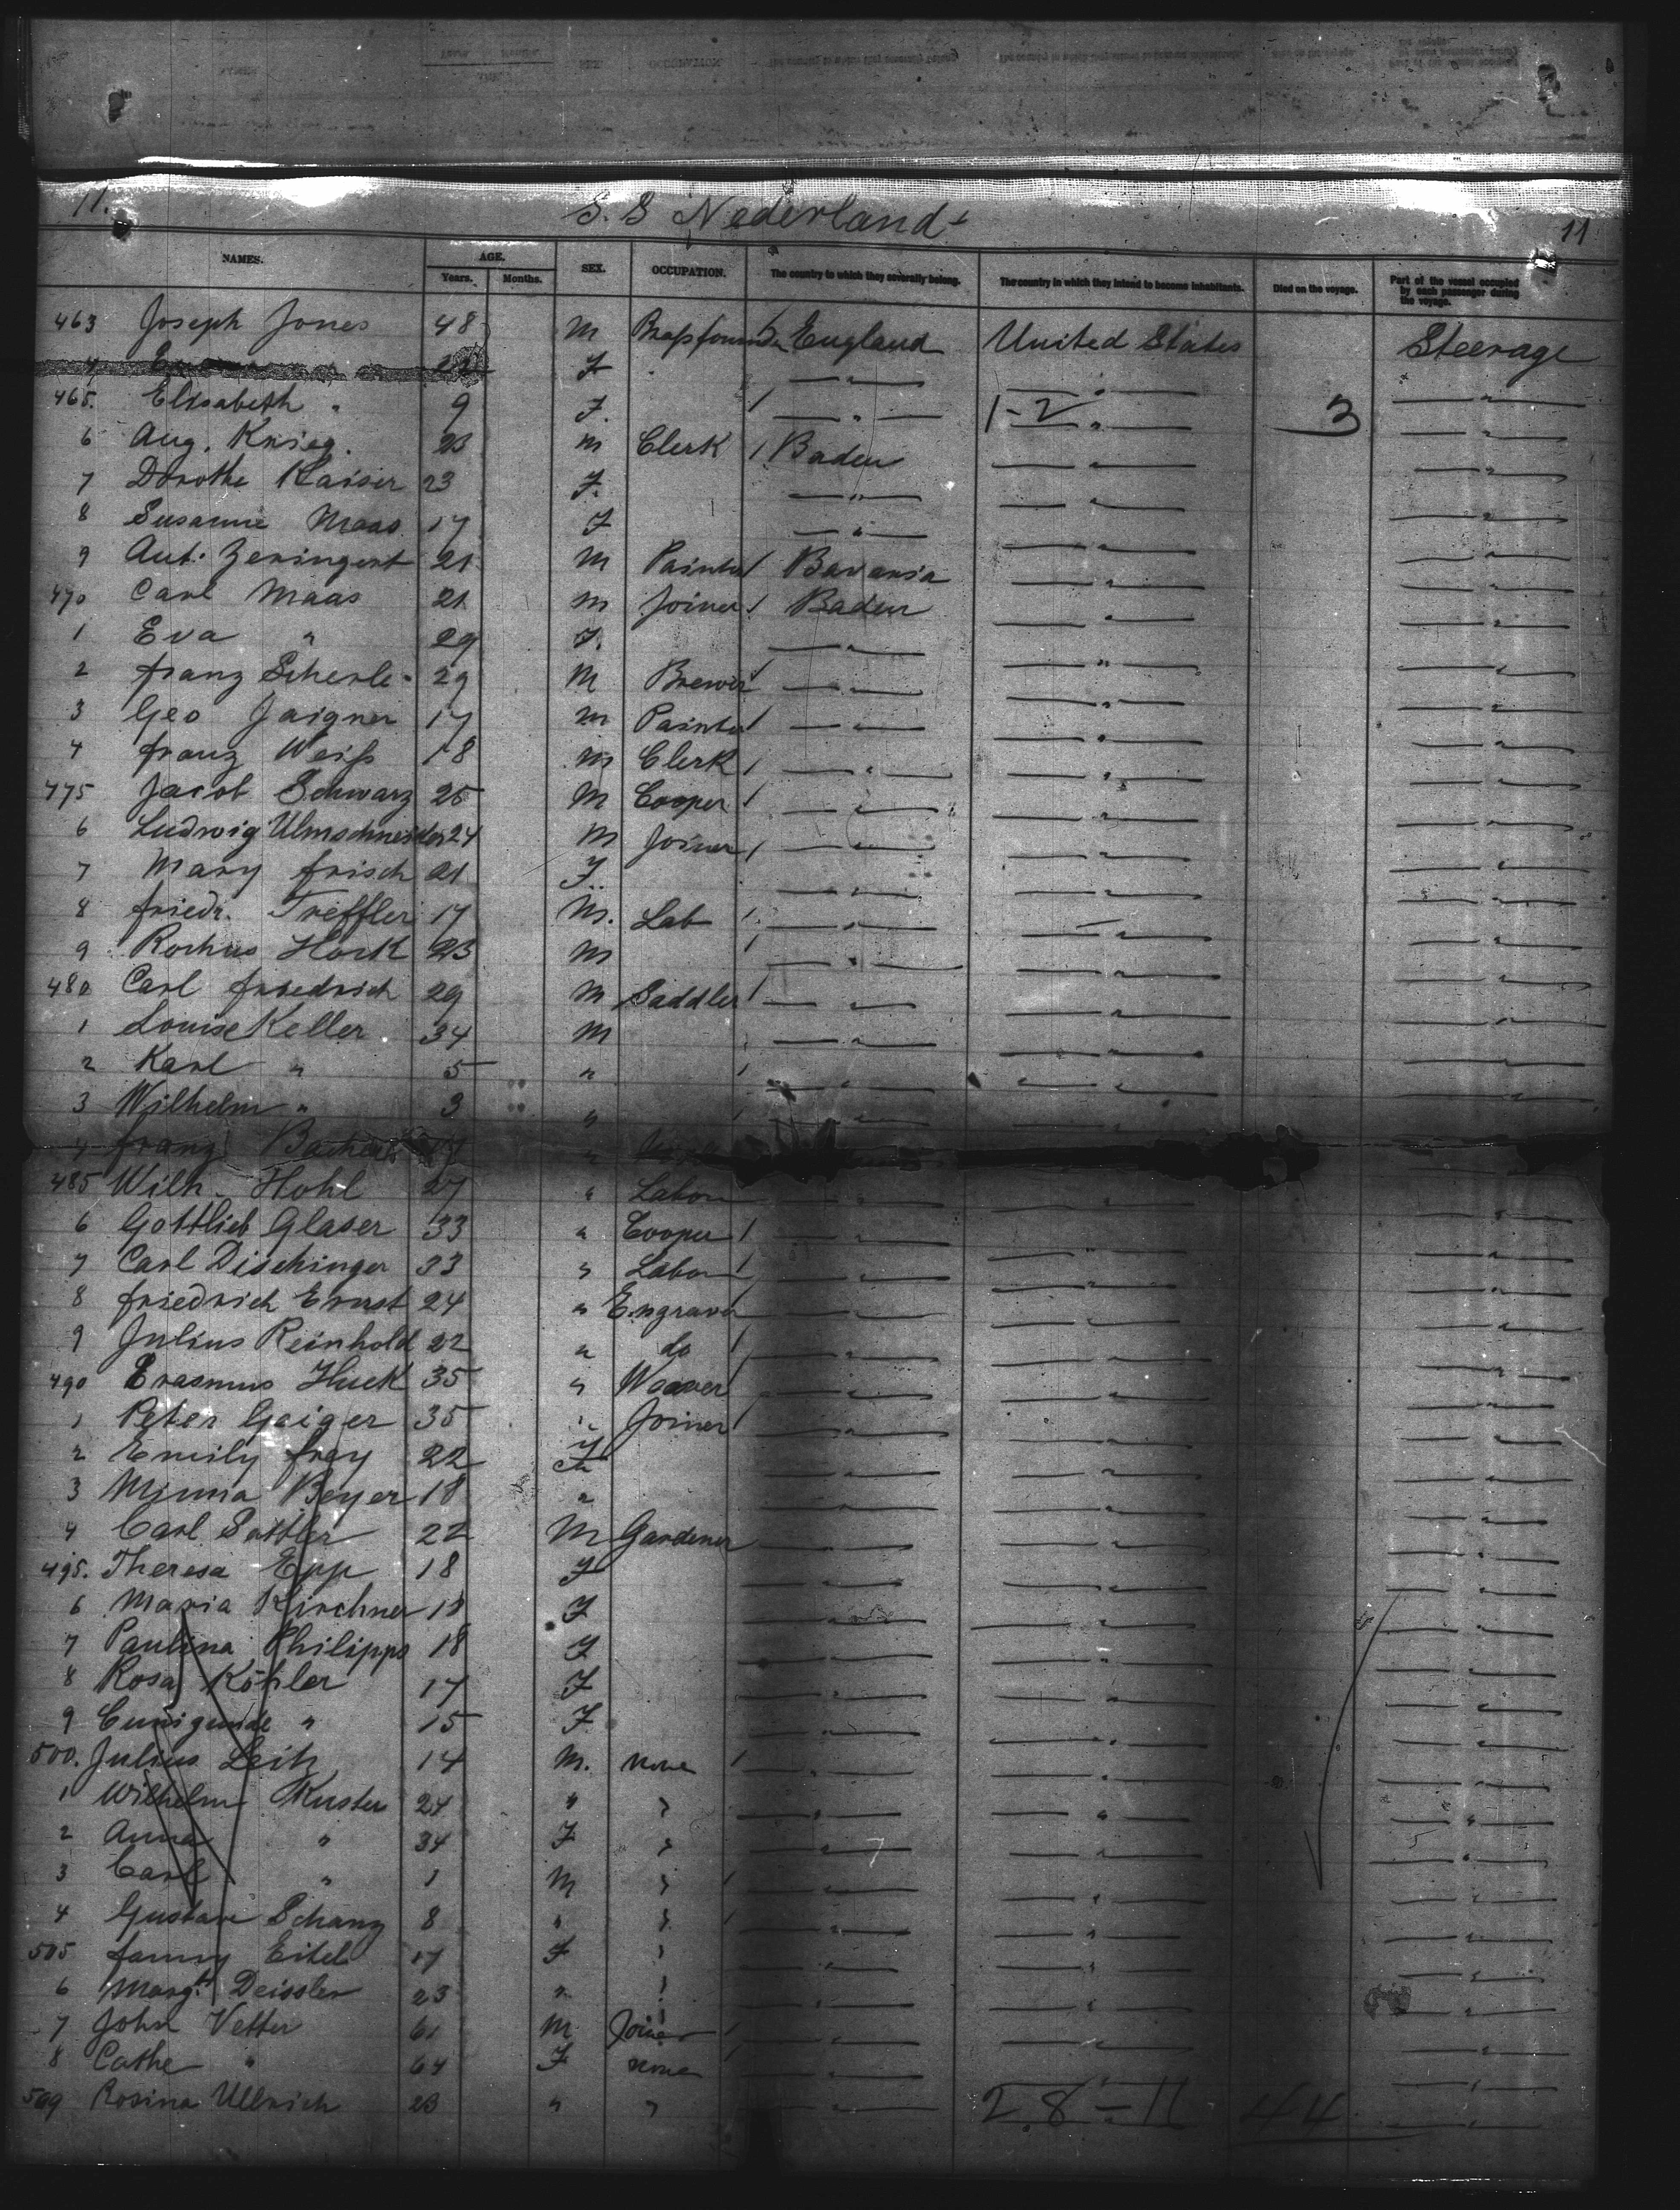 11. S. S Nederland 11
NAMES. AGE. Years. Months. SEX. OCCUPATION. The country to which they severally belong. The country in which they intend to become inhabitants. Died on the voyage. Part of the vessel occupied by each passenger during the voyage.
463 Joseph Jones 48 M England United States Steerage
4 F — " —
465. Elisabeth " 9 F. — " — 1-2 — " — 3 — " —
6 Aug. Krieg. 23 m Clerk Baden — " — — " —
7 Dorothe Kaiser 23 F. — " — — " — — " —
8 Susanne Maas 17 F — " — — " — — " —
9 Ant. Zeringert 21 M Painter Bavaria — " — — " —
470 Carl Maas 21 m Joiner Baden — " — — " —
1 Eva " 29 F. — " — — " — — " —
2 Franz Scherle 29 M Brewer — " — — " — — " —
3 Geo Jaigner 17 m Painter — " — — " — — " —
4 Franz Weiss 18 m Clerk — " — — " — — " —
475 Jacob Schwarz 25 M Cooper — " — — " — — " —
6 Ludwig Ulmschneider 24 M Joiner — " — — " — — " —
7 Mary Frisch 21 F. — " — — " — — " —
8 Friedr. Treffler 17 M. Lab — " — — " — — " —
9 Rochus Hock 23 M — " — — " — — " —
480 Carl Friedrich 29 M Saddler — " — — " — — " —
1 Louise Keller 34 M — " — — " — — " —
2 Karl " 5 " — " — — " — — " —
3 Wilhelm " 3 " — " — — " — — " —
4 Franz "
485 Wilh. Hohl 27 " Labor — " — — " — — " —
6 Gottlieb Glaser 33 " Cooper — " — — " — — " —
7 Carl Dischinger 33 " Labor — " — — " — — " —
8 Friedrich Ernst 24 " Engraver — " — — " — — " —
9 Julius Reinhold 22 " do — " — — " — — " —
490 Erasmus Huck 35 " Weaver — " — — " — — " —
1 Peter Gaiger 35 " Joiner — " — — " — — " —
2 Emily Frey 22 F — " — — " — — " —
3 Minna Beyer 18 " — " — — " — — " —
4 Carl Sattler 22 M Gardener — " — — " — — " —
495. Theresa Epp 18 F — " — — " — — " —
6 Maria Kirchner 18 F — " — — " — — " —
7 Paulina Philipps 18 F — " — — " — — " —
8 Rosa Köhler 17 F — " — — " — — " —
9 Cunigunde " 15 F — " — — " — — " —
500. Julius Leitz 14 M. none — " — — " — — " —
1 Wilhelm Kuster 24 " " — " — — " — — " —
2 Anna " 34 F " — " — — " — — " —
3 Carl " 1 M " — " — — " — — " —
4 Gustave Schanz 8 " " — " — — " — — " —
505 Fanny Eitel 17 F " — " — — " — — " —
6 Margt. Deissler 23 " " — " — — " — — " —
7 John Vetter 61 M Joiner — " — — " — — " —
8 Cathe " 64 F none — " — — " — — " —
509 Rosina Ullrich 23 " " — " — 28 - 11 44 — " —